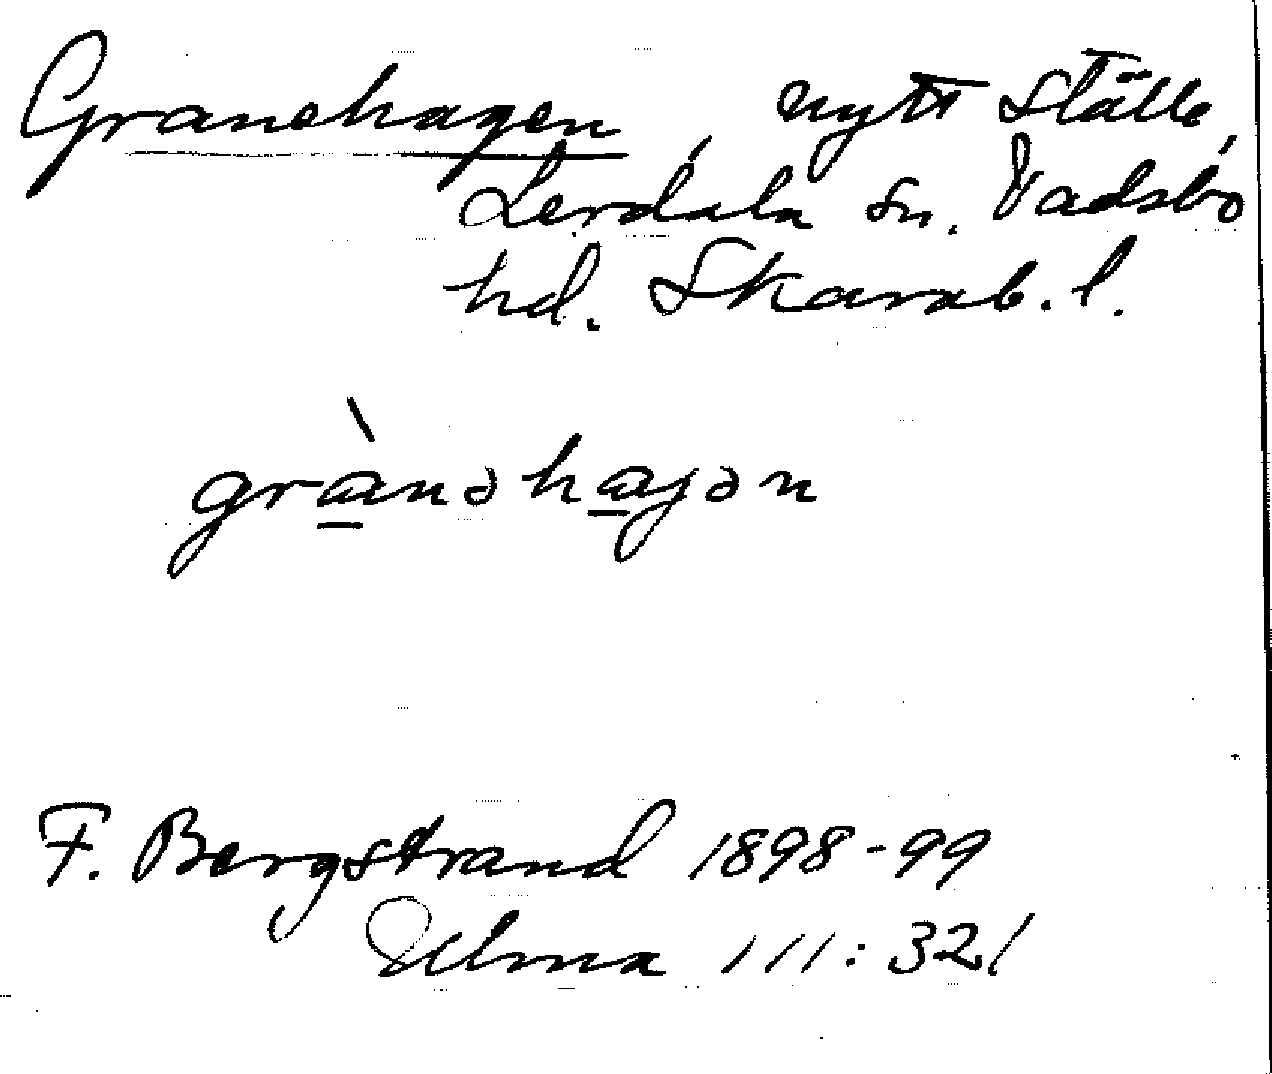 Granehagen, nytt ställe,
Lerdala sn. Vadsbo
hd. Skarab. l.
grànəhajən
F. Bergstrand 1898-99
Ulma 111:321